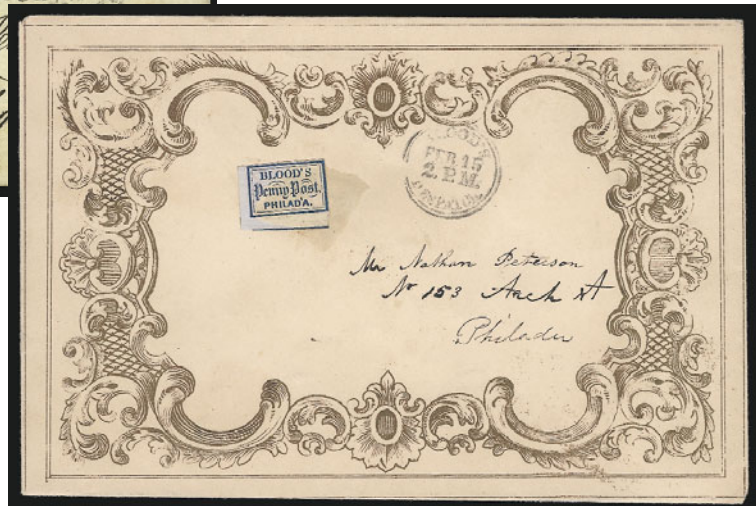 BLOOD'S
Penny Post.
PHILAD'A.
BLOOD'S
FEB 15
2. P.M.
DESPATCH
Mr Nathan Peterson
No 153 Arch St
Philada